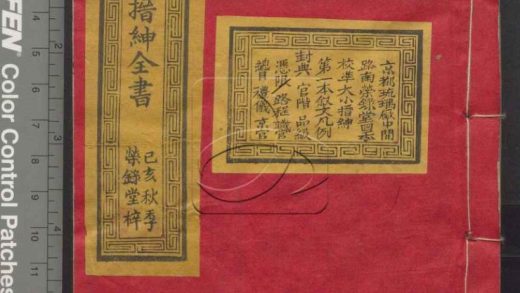 搢紳全書
己亥秋季
榮錄堂梓
京都琉璃廠中間
路南榮錄堂本
校準大小搢紳
第一本敘文凡例
封典 官階 品級
憑 路程 官
儀 京官
FEN Color Control Patches
4
5
6
7
8
9
10
11
2
3
4